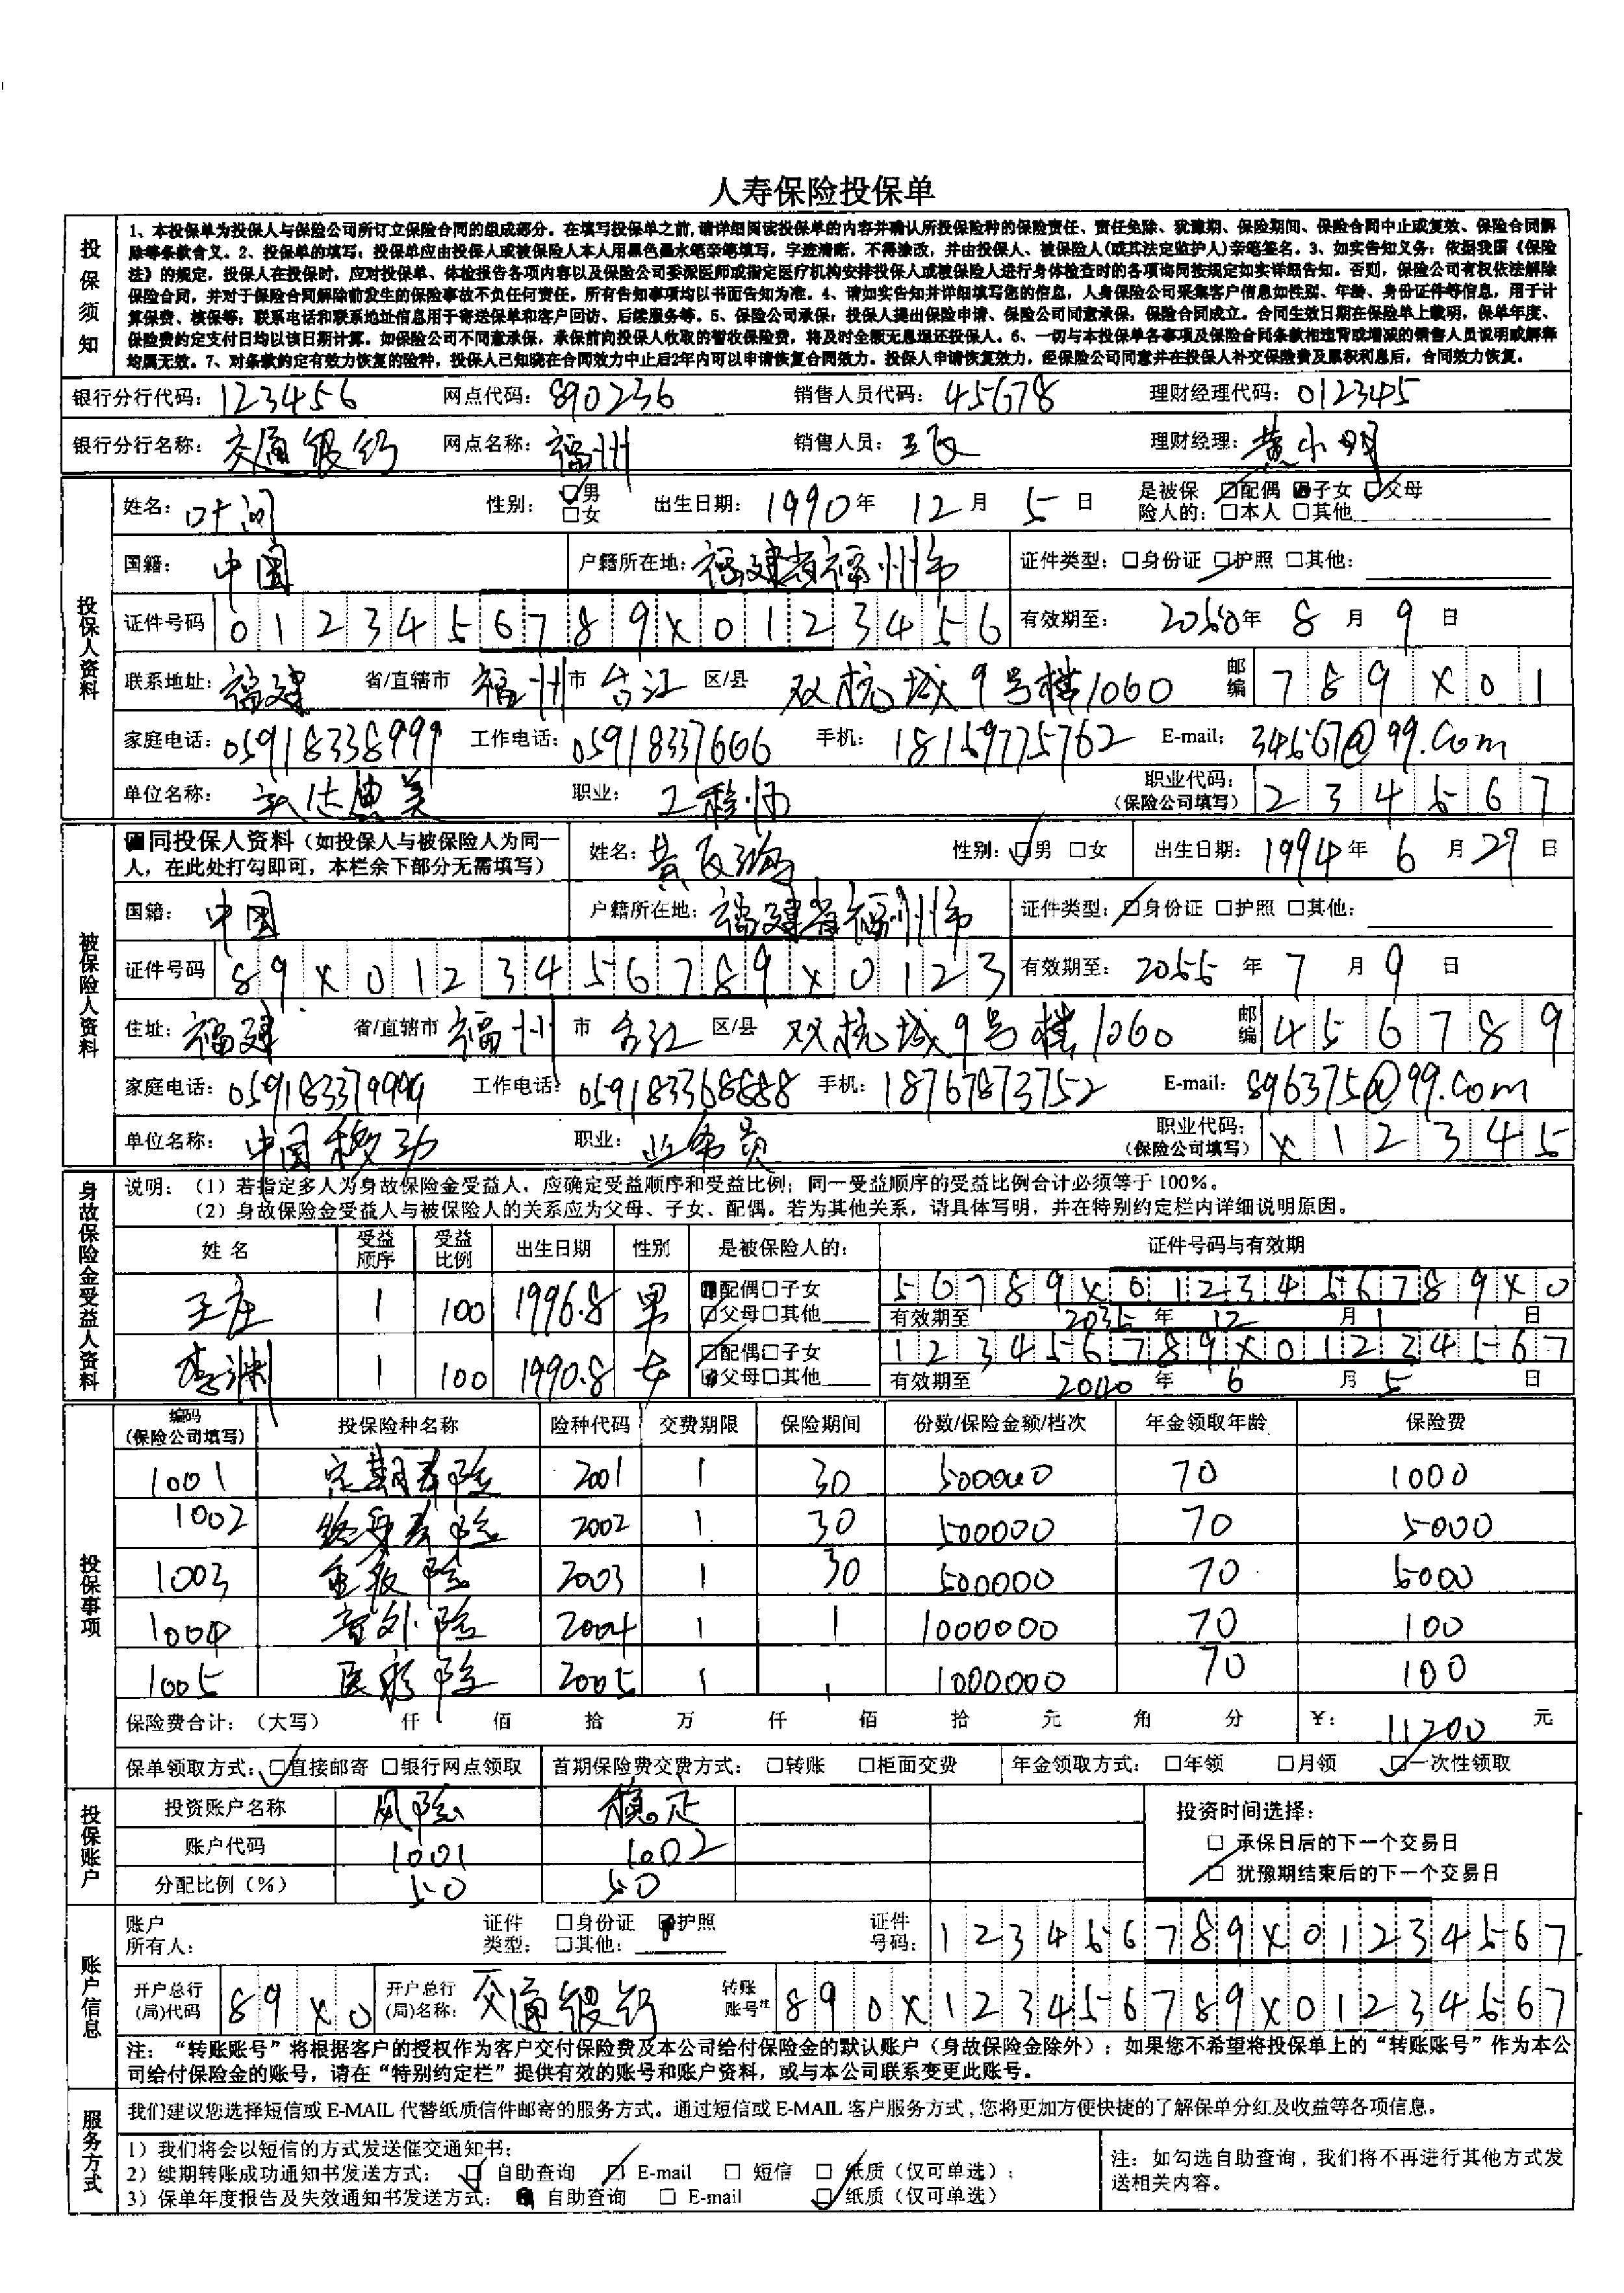 人寿保险投保单
投保须知
1、本投保单为投保人与保险公司所订立保险合同的组成部分。在填写投保单之前,请详细阅读投保单的内容并确认所投保险种的保险责任、责任免除、犹豫期、保险期间、保险合同中止或复效、保险合同解
除等条款含义。2、投保单的填写：投保单应由投保人或被保险人本人用黑色墨水笔亲笔填写，字迹清晰，不得涂改，并由投保人、被保险人(或其法定监护人)亲笔签名。3、如实告知义务：依据我国《保险
法》的规定，投保人在投保时，应对投保单、体检报告各项内容以及保险公司委派医师或指定医疗机构安排投保人或被保险人进行身体检查时的各项询问按规定如实详细告知。否则，保险公司有权依法解除
保险合同，并对于保险合同解除前发生的保险事故不负任何责任。所有告知事项均以书面告知为准。4、请如实告知并详细填写您的信息，人身保险公司采集客户信息如性别、年龄、身份证件等信息，用于计
算保费、核保等；联系电话和联系地址信息用于寄送保单和客户回访、后续服务等。5、保险公司承保：投保人提出保险申请、保险公司同意承保，保险合同成立。合同生效日期在保险单上载明，保单年度、
保险费约定支付日均以该日期计算。如保险公司不同意承保，承保前向投保人收取的暂收保险费，将及时全额无息退还投保人。6、一切与本投保单各事项及保险合同条款相违背或增减的销售人员说明或解释
均属无效。7、对条款约定有效力恢复的险种，投保人已知晓在合同效力中止后2年内可以申请恢复合同效力。投保人申请恢复效力，经保险公司同意并在投保人补交保险费及累积利息后，合同效力恢复。
银行分行代码：123456 网点代码：890236 销售人员代码：45678 理财经理代码：012345
银行分行名称：交通银行 网点名称：福州 销售人员：王飞 理财经理：黄小明
投保人资料
姓名：叶问 性别：□男 □女 出生日期：1990年 12月 5日 是被保险人的：□配偶 □子女 □父母 □本人 □其他
国籍：中国 户籍所在地：福建省福州市 证件类型：□身份证 □护照 □其他：
证件号码 0123456789X0123456 有效期至：2050年 8月 9日
联系地址：福建 省/直辖市 福州 市 台江 区/县 双杭城9号楼1060 邮编 789X01
家庭电话：05918338999 工作电话：0591837666 手机：18159775762 E-mail：34567@99.com
单位名称： 职业：工程师 职业代码：（保险公司填写） 234567
被保险人资料
同投保人资料（如投保人与被保险人为同一人，在此处打勾即可，本栏余下部分无需填写） 姓名： 性别：□男 □女 出生日期：1994年 6月 27日
国籍：中国 户籍所在地：福建省福州市 证件类型：□身份证 □护照 □其他：
证件号码 89X0123456789X0123 有效期至：2055年 7月 9日
住址：福建 省/直辖市 福州 市 台江 区/县 双杭城9号楼1060 邮编 456789
家庭电话：059183379999 工作电话：059183368888 手机：18767873752 E-mail：896375@99.com
单位名称：中国移动 职业：业务员 职业代码：（保险公司填写） X12345
身故保险金受益人资料
说明：（1）若指定多人为身故保险金受益人，应确定受益顺序和受益比例；同一受益顺序的受益比例合计必须等于100%。
（2）身故保险金受益人与被保险人的关系应为父母、子女、配偶。若为其他关系，请具体写明，并在特别约定栏内详细说明原因。
姓名 受益顺序 受益比例 出生日期 性别 是被保险人的： 证件号码与有效期
王庄 1 100 1996.8 男 □配偶□子女 □父母□其他 56789X0123456789X0
有效期至 2035年 12月 1日
李渊 1 100 1990.8 女 □配偶□子女 □父母□其他 123456789X01234567
有效期至 2040年 6月 5日
投保事项
编码（保险公司填写） 投保险种名称 险种代码 交费期限 保险期间 份数/保险金额/档次 年金领取年龄 保险费
1001 定期寿险 2001 1 30 500000 70 1000
1002 终身寿险 2002 1 30 500000 70 5000
1003 重疾险 2003 1 30 500000 70 5000
1004 意外险 2004 1 1 1000000 70 100
1005 医疗险 2005 1 1 1000000 70 100
保险费合计：（大写） 仟 佰 拾 万 仟 佰 拾 元 角 分 ￥：11200 元
保单领取方式：□直接邮寄 □银行网点领取 首期保险费交费方式：□转账 □柜面交费 年金领取方式：□年领 □月领 □一次性领取
投保账户
投资账户名称 风险 稳定 投资时间选择：
账户代码 1001 1002 □ 承保日后的下一个交易日
分配比例（%） 50 50 □ 犹豫期结束后的下一个交易日
账户信息
账户所有人： 证件类型：□身份证 □护照 □其他： 证件号码：123456789X01234567
开户总行(局)代码 89X0 开户总行(局)名称：交通银行 转账账号注 890X123456789X01234567
注：“转账账号”将根据客户的授权作为客户交付保险费及本公司给付保险金的默认账户（身故保险金除外）；如果您不希望将投保单上的“转账账号”作为本公
司给付保险金的账号，请在“特别约定栏”提供有效的账号和账户资料，或与本公司联系变更此账号。
服务方式
我们建议您选择短信或 E-MAIL 代替纸质信件邮寄的服务方式。通过短信或 E-MAIL 客户服务方式，您将更加方便快捷的了解保单分红及收益等各项信息。
1）我们将会以短信的方式发送催交通知书；
2）续期转账成功通知书发送方式：□ 自助查询 □ E-mail □ 短信 □ 纸质（仅可单选）；
3）保单年度报告及失效通知书发送方式：□ 自助查询 □ E-mail □ 纸质（仅可单选）
注：如勾选自助查询，我们将不再进行其他方式发
送相关内容。